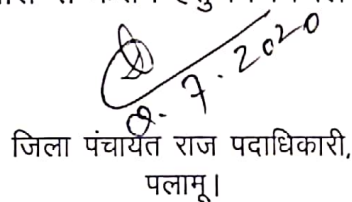 7.2020
जिला पंचायत राज पदाधिकारी,
पलामू।